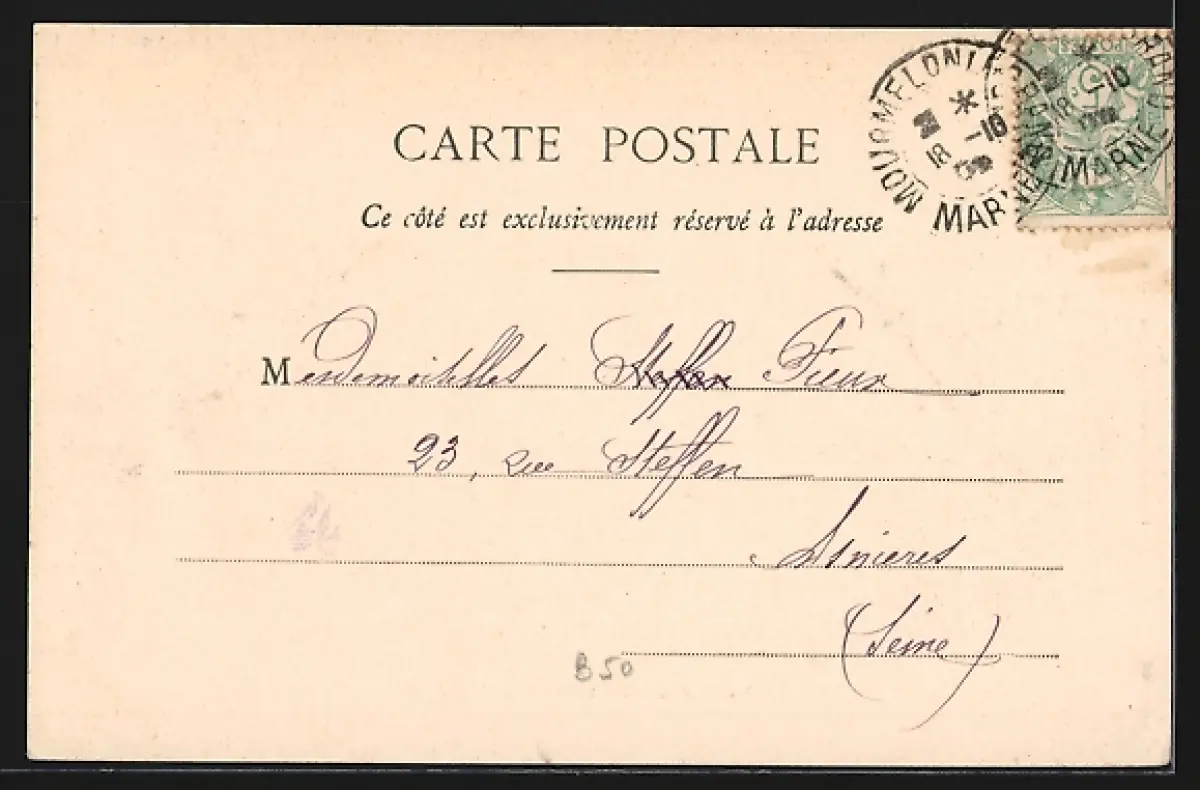 CARTE POSTALE
Ce côté est exclusivement réservé à l'adresse
Mesdemoiselles Steffen Fieux
23, rue Steffen
Asnieres
(Seine)
B50
MOURMELON MARNE
18 -10
MARNE
18 -10
POSTES